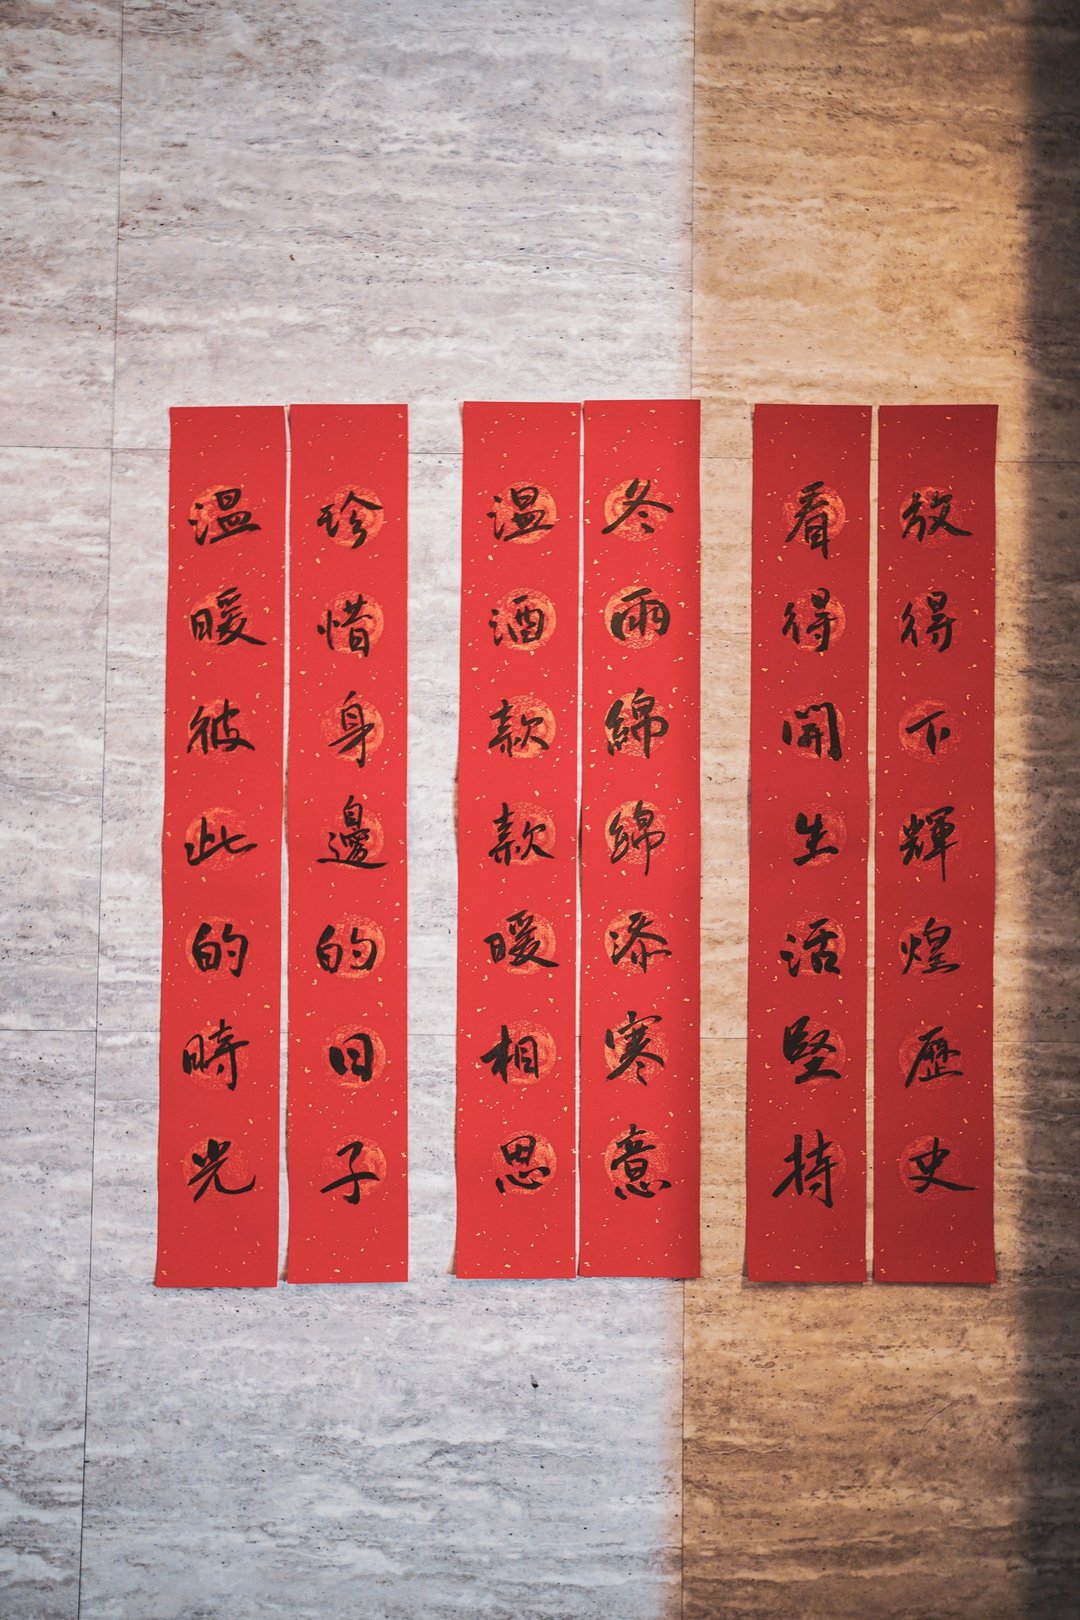 放得下輝煌歷史
看得開生活堅持
冬雨綿綿添寒意
溫酒款款暖相思
珍惜身邊的日子
溫暖彼此的時光